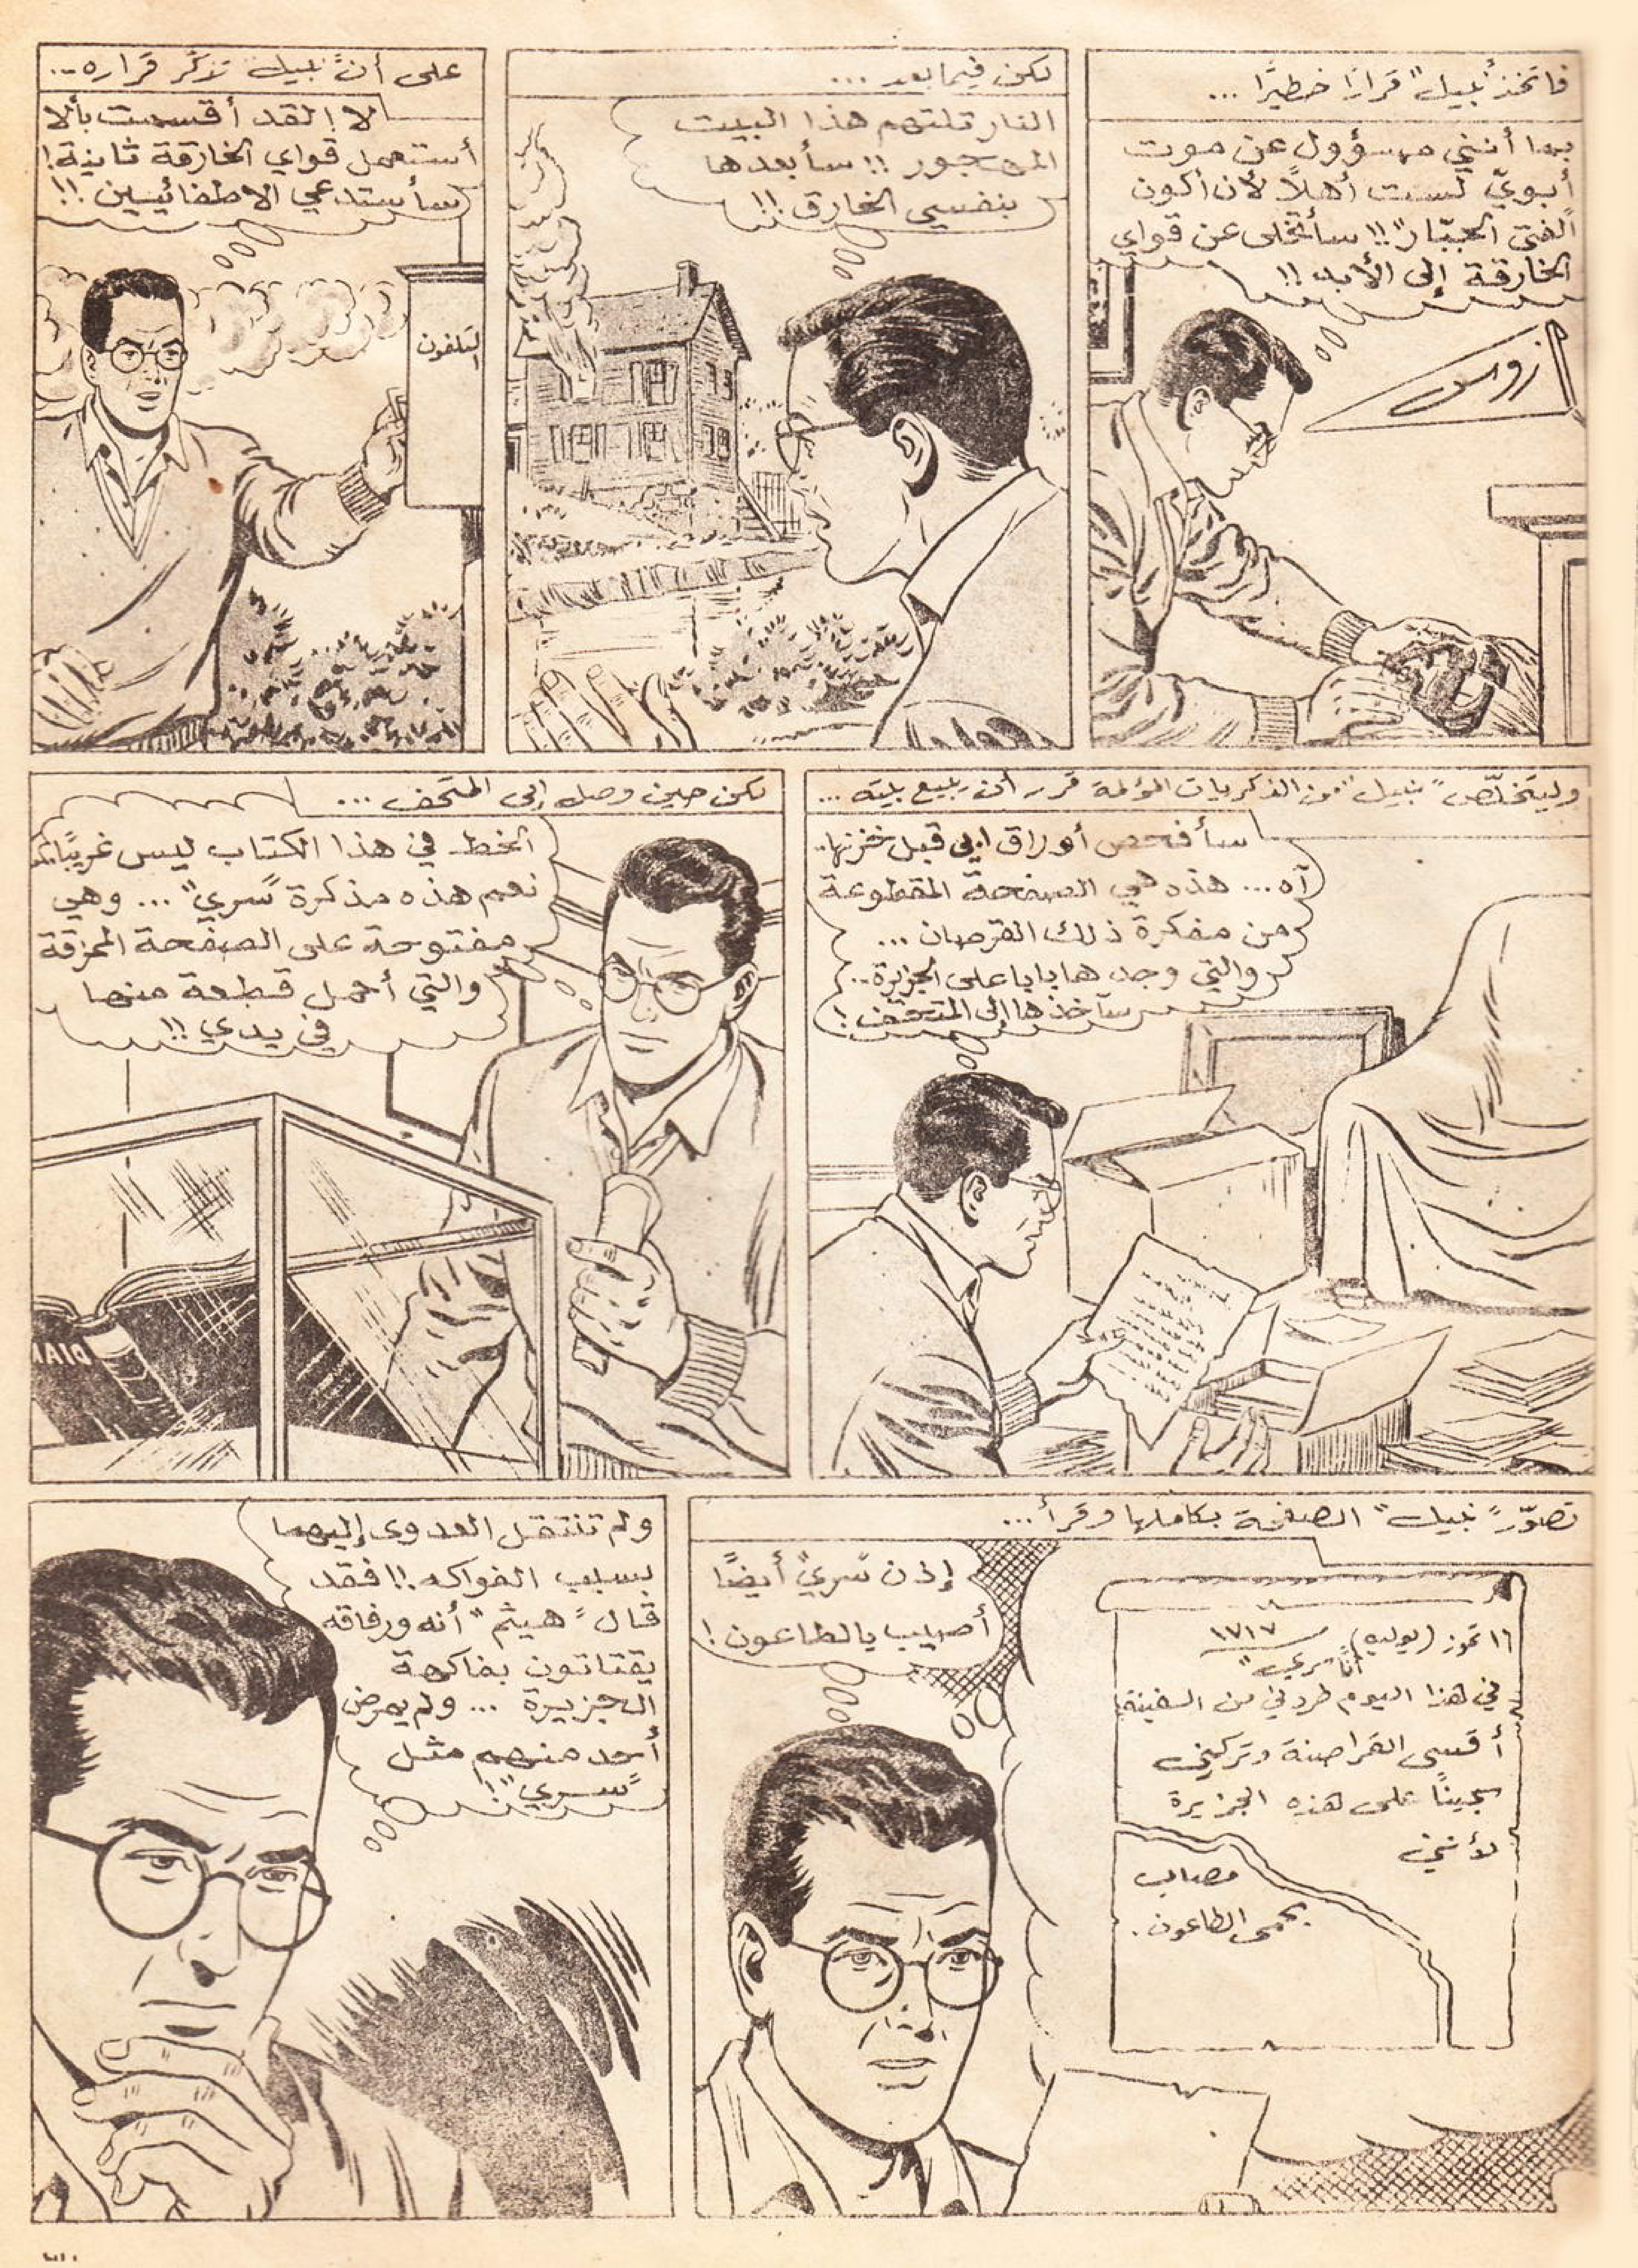 فاتخذ "نبيل" قرارًا خطيرًا ...
بما أنني مسؤول عن موت
أبويّ لست أهلاً لأن أكون
"الفتى الجبّار"!! سأتخلى عن قواي
الخارقة إلى الأبد !!
زوس
لكن فيما بعد ...
النار تلتهم هذا البيت
المهجور !! سأبعدها
بنفسي الخارق !!
على أن "نبيل" تذكّر قراره ...
لا ! لقد أقسمت بألا
أستعمل قواي الخارقة ثانية !
سأستدعي الاطفائيين !!
التلفون
وليتخلّص "نبيل" من الذكريات المؤلمة قرر أن يبيع بيته ...
سأفحص أوراق ابي قبل خزنها..
آه ... هذه هي الصفحة المقطوعة
من مفكرة ذلك القرصان ...
والتي وجدها بابا على الجزيرة ..
سآخذها إلى المتحف !
لكن حين وصل إلى المتحف ...
الخط في هذا الكتاب ليس غريبًا
نعم هذه مذكرة "سري" ... وهي
مفتوحة على الصفحة الممزقة
والتي أحمل قطعة منها
في يدي !!
DIA
تصوّر "نبيل" الصفحة بكاملها وقرأ ...
إذن "سري" أيضًا
أصيب بالطاعون !
١٦ تموز (يوليه) ١٧١٧
أنا "سري"
في هذا اليوم طردني من السفينة
أقسى القراصنة وتركني
سجينًا على هذه الجزيرة
لأنني
مصاب
بحمى الطاعون .
ولم تنتقل العدوى إليهما
بسبب الفواكه !! فقد
قال "هيثم" أنه ورفاقه
يقتاتون بفاكهة
الجزيرة ... ولم يمرض
أحد منهم مثل
"سري" !